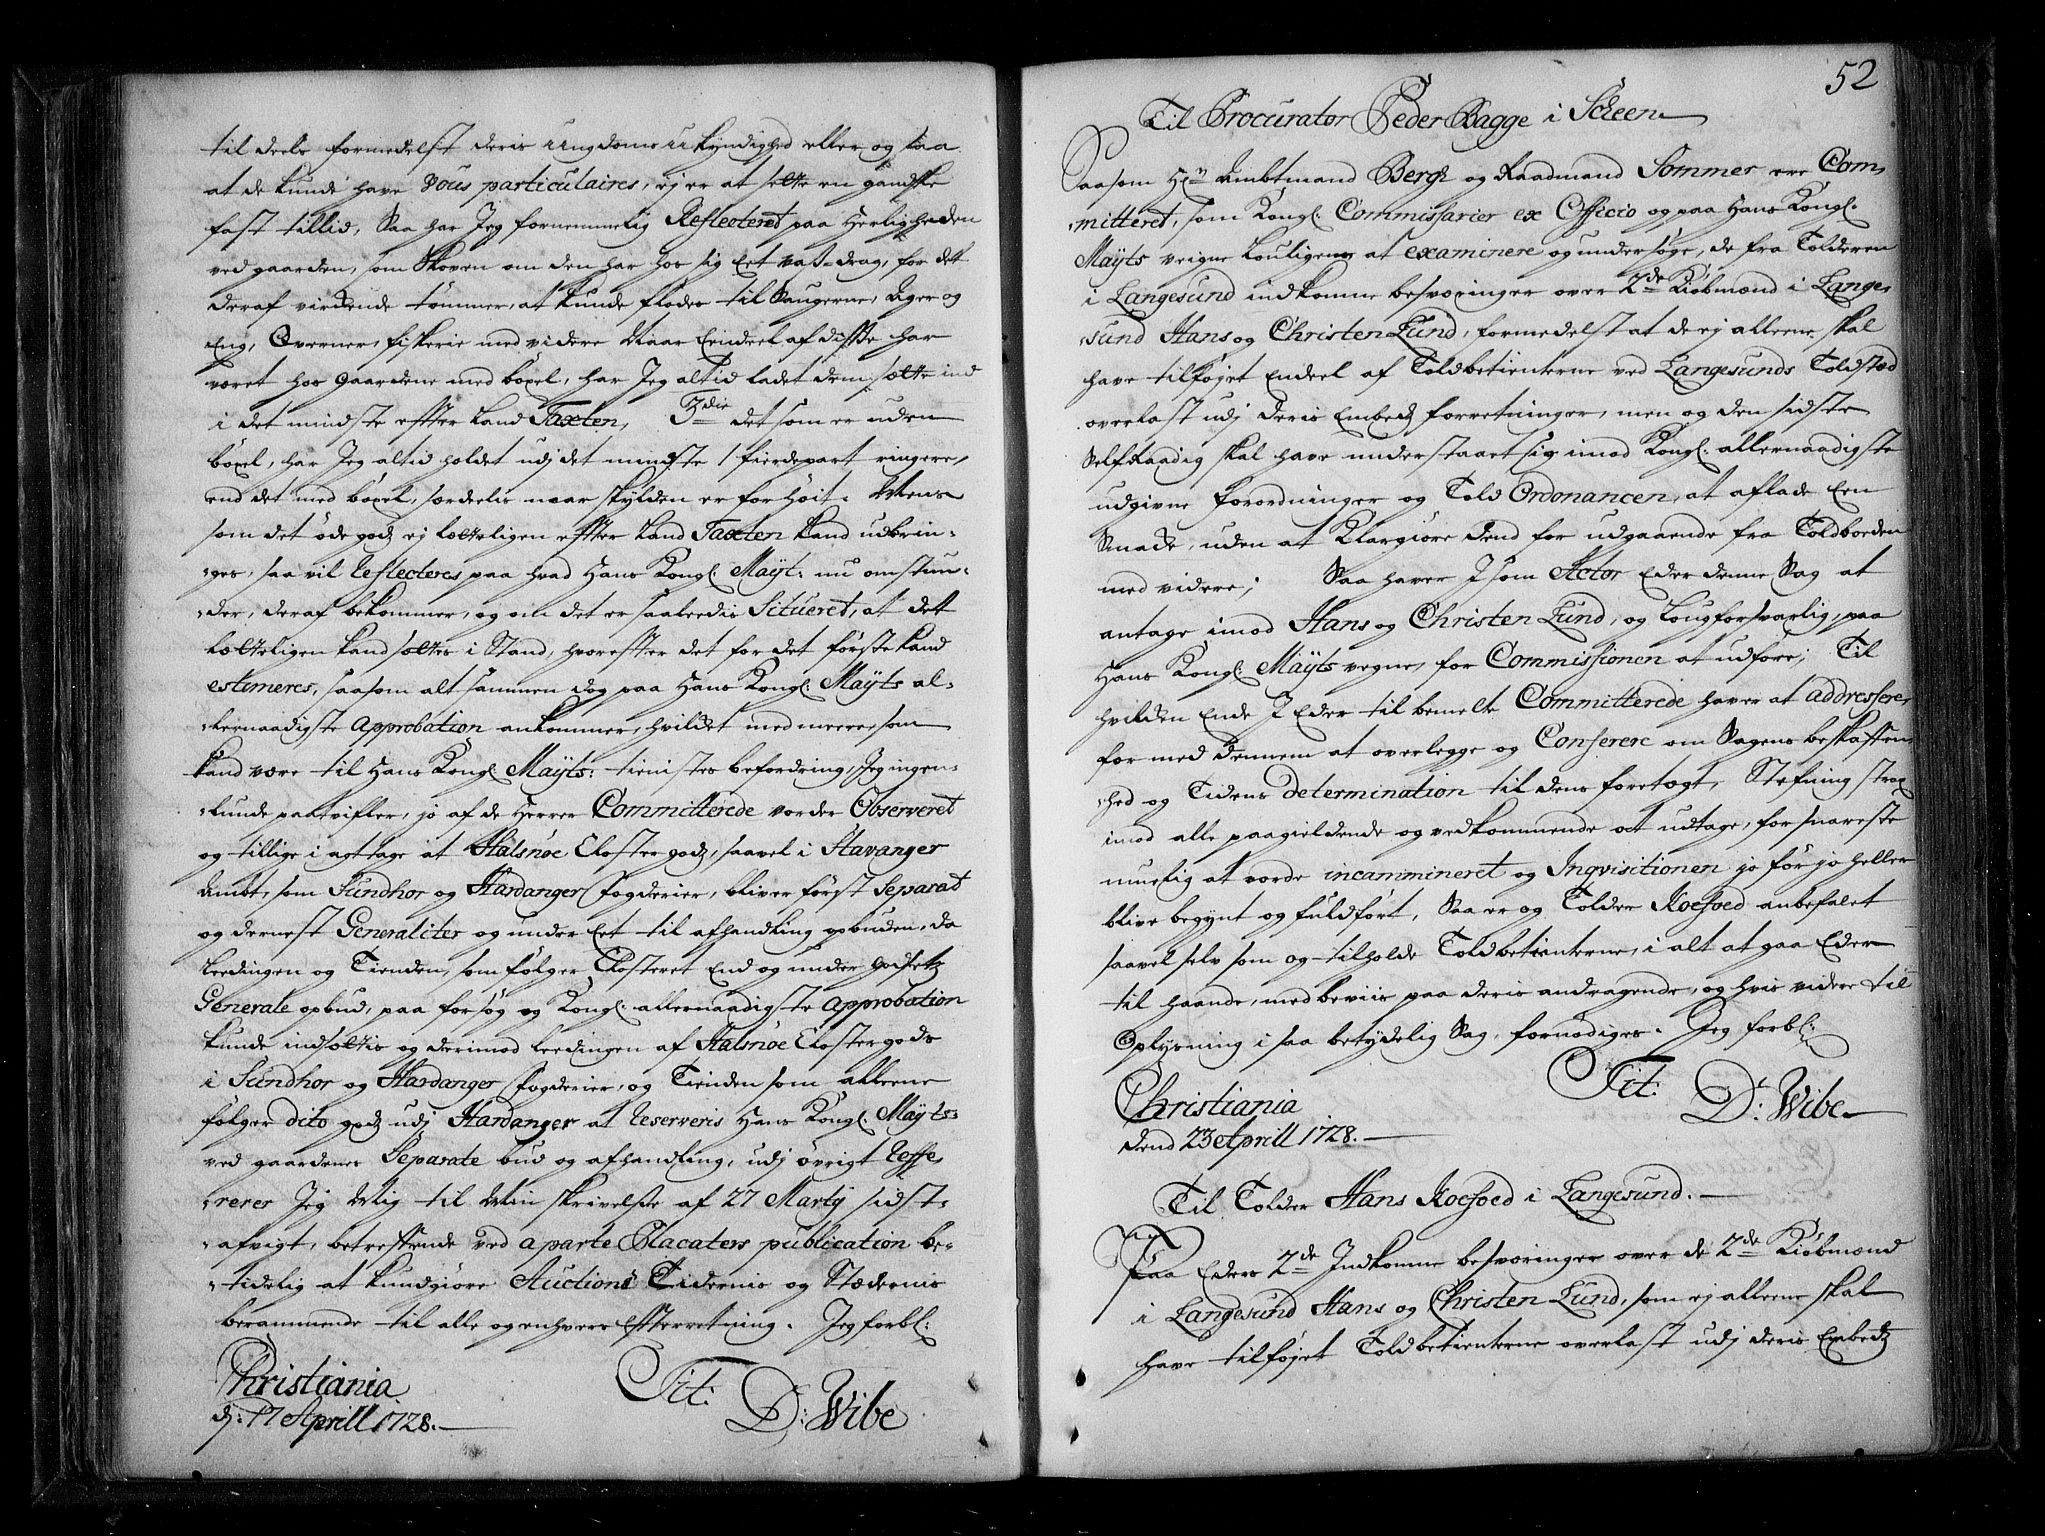 til deels formedelst deris ungdoms ukyndighed eller og saa
at de kunde have Vous particulaires, ej er at sette en gandske
fast tillid, Saa har Jeg fornemmelig Reflecteret paa Herligheden
ved gaarden, som Skoven om den har hos sig Eet vas-drag, for det
deraf virckende tømmer, at kunde flødes til Saugerne, Ager og
Eng, Qverner, fiskerie med videre Naar Eendeel af disse har
været hos gaardene med böxel, har Jeg altid ladet dem sætte ind
i det mindste effter Land Taxten, 3die det som er uden
böxel, har Jeg altid holdet udj det mindste 1 fierdepart ringere,
end det med böxel, særdeelis naar skylden er for høit. Mens
som det øde gods ej lætteligen effter Land Taxten kand udbrin-
ges, saa vil Reflecteres paa hvad Hans Kongl: Mayt: nu omstun-
der, deraf bekommer, og om det er saaleedis Situeret, at det
lætteligen kand sættes i Stand, hvoreffter det for det første kand
estimeres, saasom alt sammen dog paa Hans Kongl: Mayts al-
lernaadigste Approbation ankommer, hvilcket med meere, som
kand være til Hans Kongl: Mayts: tienistes befordring, Jeg ingen-
lunde paatvifler, jo af de Herrer Committerede vorder Observeret
og tillige i agt tage at Halsnøe Closter gods, saavel i Stavanger
Ambt, som Sundhor og Hardanger Fogderier, bliver først Separat
og dernest Generaliter og under Eet til afhandling opbuden, da
Leedingen og Tienden, som følger Closteret End og under godsetz
Generale opbud, paa forsøg og Kongl: allernaadigste Approbation
kunde indsættis og derimod Leedingen af Halsnøe Closter gods
i Sundhor og Hardanger Fogderier, og Tienden som alleene
følger dito gods udj Hardanger at reserveris Hans Kongl: Mayts:
ved gaardenes Separate bud og afhandling, udj øvrigt Reffe-
rerer Jeg Mig til Min skrivelse af 27 Martij sidst-
afvigt, betreffende ved aparte Placaters publication be-
tidelig at kundgiøre Auctions Tidernis og Stædernis
berammende til alle og enhvers Effterretning. Jeg forbl:
Christiania Tit:
d: 17 Aprill 1728. D: Wibe
52
Til Procurator Peder Bagge i Scheen
Saasom Hr: Ambtmand Bergh og Raadmand Sommer ere Com-
mitteret, som Kongl: Commissarier ex Officio og paa Hans Kongl:
Mayts veigne Louligen at examinere og undersøge, de fra Tolderen
i Langesund indkomne besværinger over 2de Kiøbmænd i Lange-
sund Hans og Christen Lund, formedelst at de ej alleene skal
have tilføjet Endeel af Toldbetienterne ved Langesunds Toldstæd
overlast udj deris Embeds forretninger, men og den sidste
Selfraadig skal have understaaet sig imod Kongl: allernaadigste
udgivne forordninger og Told Ordonancen, at aflade Een
Smacke, uden at Klargiøre dend for udgaaende fra Toldboeden
med videre; Saa haver I som Actor Eder denne Sag at
antage imod Hans og Christen Lund, og Lougforsvarlig, paa
Hans Kongl: Mayts vegne, for Commissionen at udføre; Til
hvilcken Ende I Eder til bemelte Committerede haver at addressere,
for med dennem at overlegge og Conferere om Sagens beskaffen-
hed og Tidens determination til dens foretagt, Stefning strax
imod alle paagieldende og vedkommende at udtage, for snareste
muelig at vorde incammineret og Inqvisitionen jo før jo heller
blive begynt og fuldført, Saa er og Tolder Roesoed anbefalet
saavel selv som og tilholde Toldbetienterne, i alt at gaa Eder
til haande, med beviis paa deris andragende, og hvis videre til
Oplysning i saa betydelig Sag, fornødiges. Jeg forbl:
Christiania Tit:
dend 23 Aprill 1728. D: Wibe
Til Tolder Hans Roesoed i Langesund.
Paa Eders 2de Indkomne besværinger over de 2de Kiøbmænd
i Langesund Hans og Christen Lund, som ej alleene skal
have tilføjet Toldbetienterne overlast udj deris Embeds